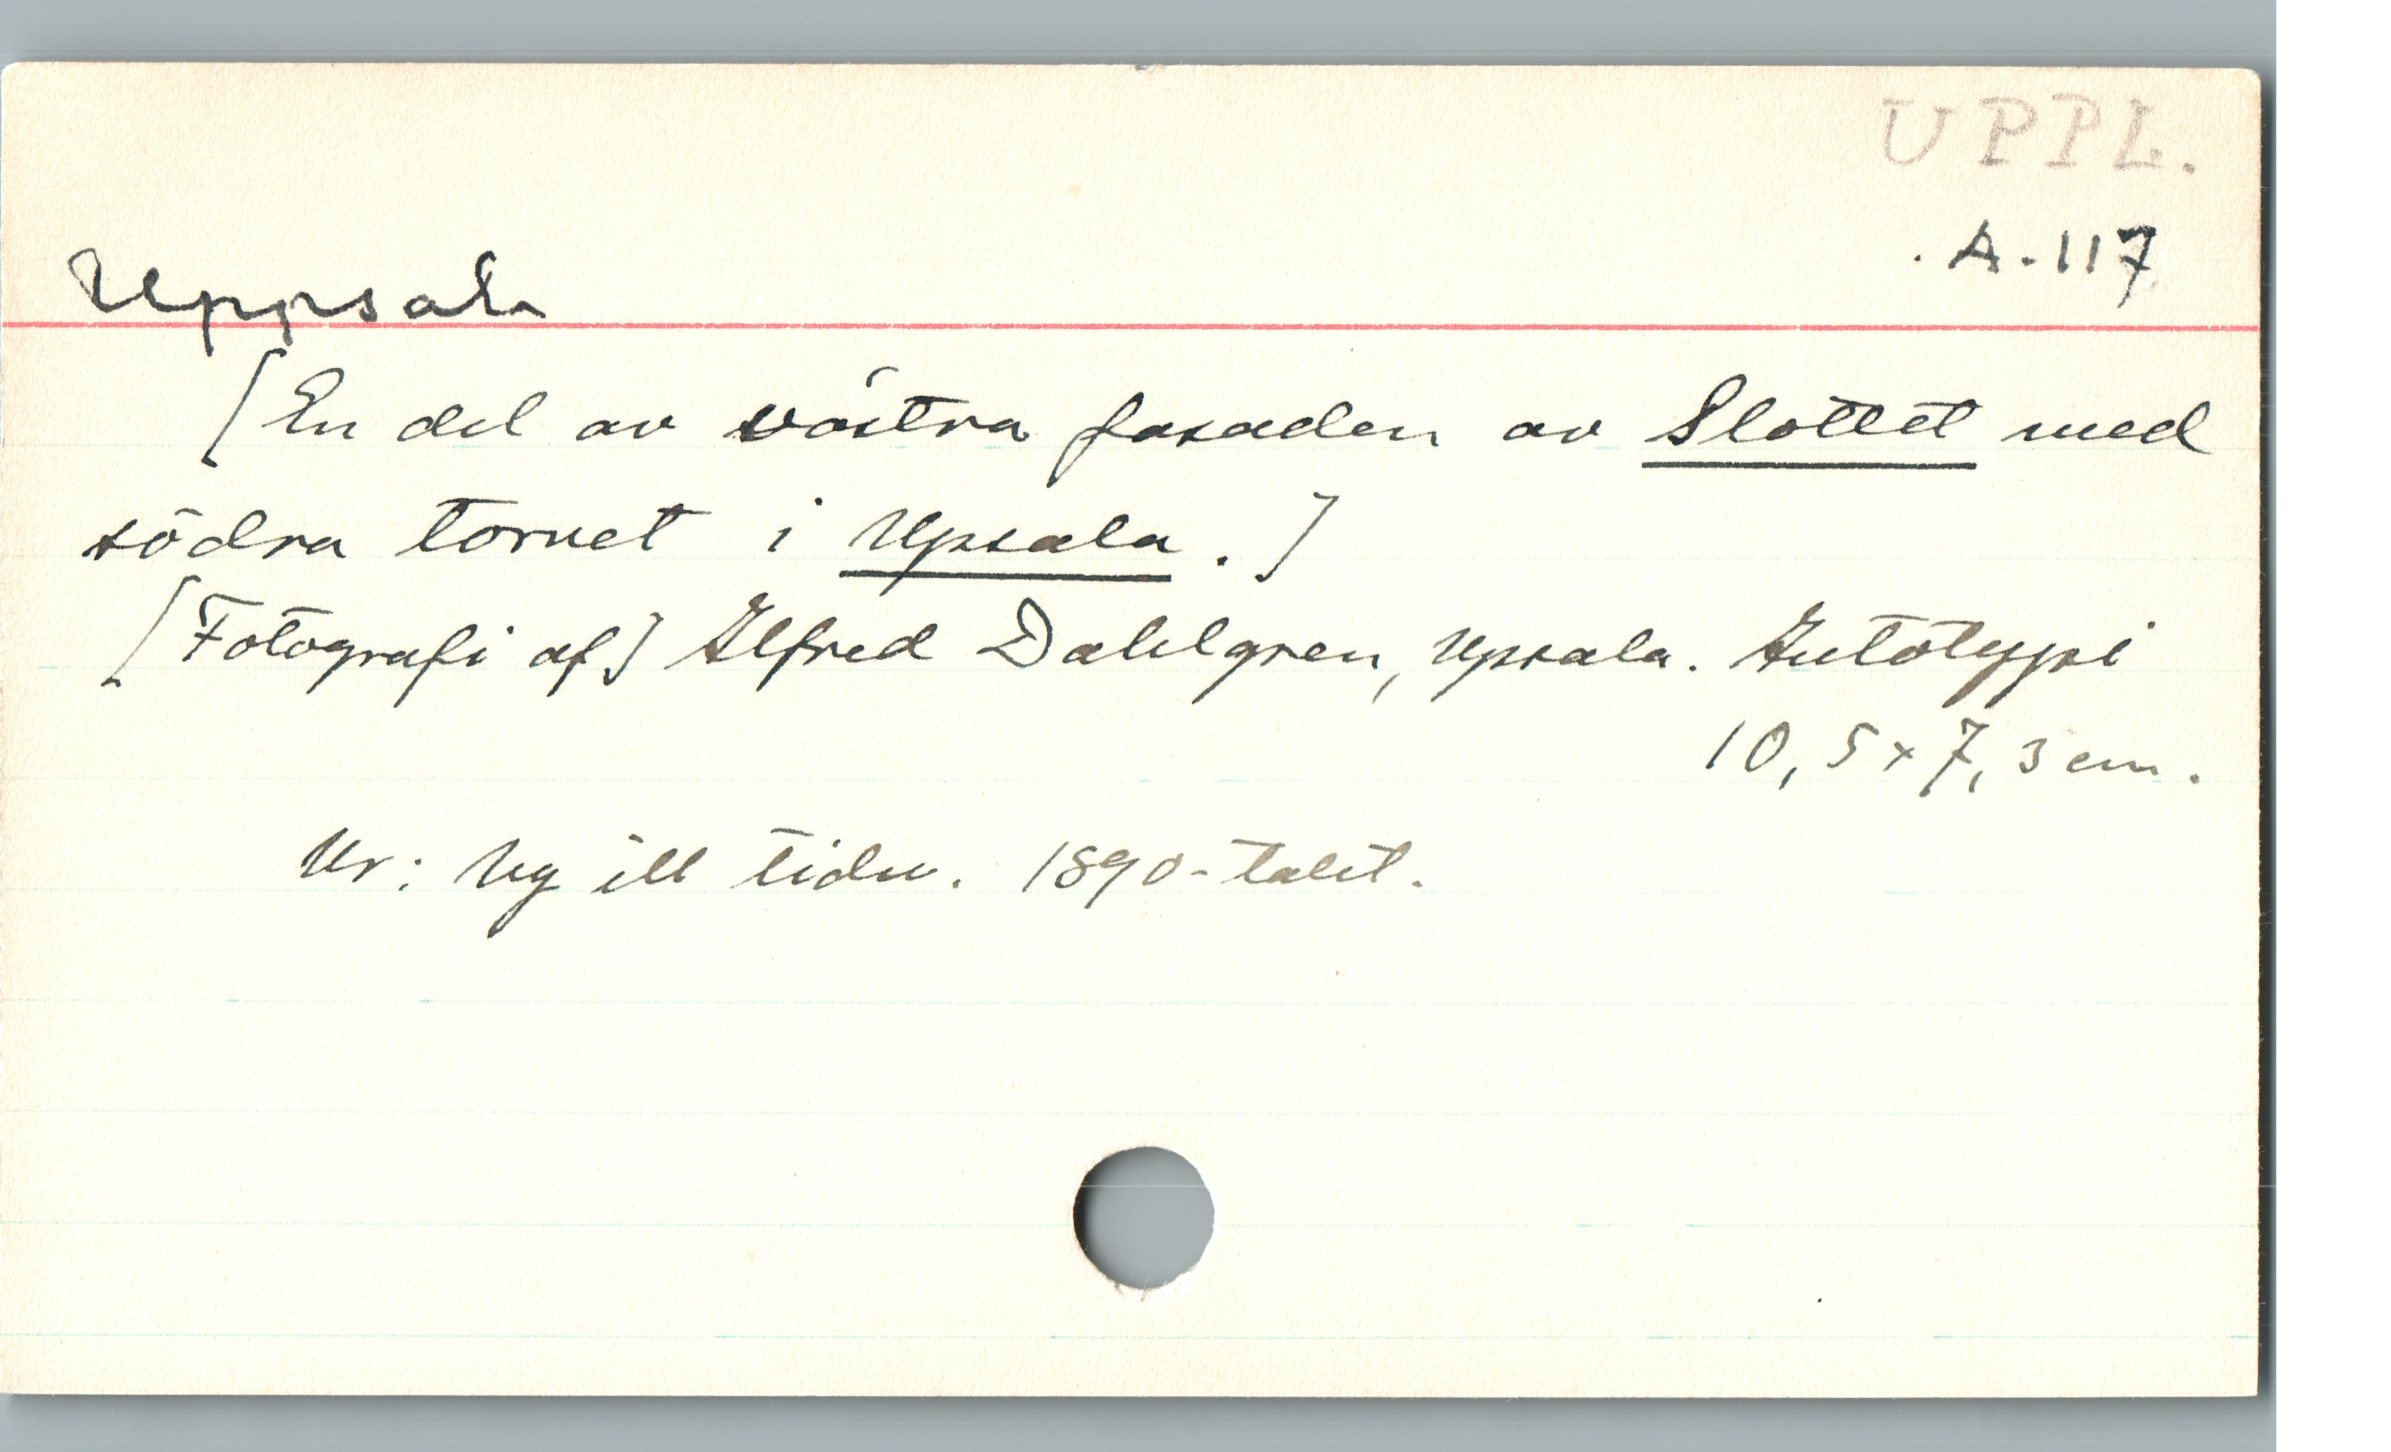 UPPL.
A-117
Uppsala
[En del av västra fasaden av Slottet med
södra tornet i Upsala.]
[Fotografi af] Alfred Dahlgren, Upsala. Autotypi
10,5 x 7,3 cm.
Ur: Ny ill tidn. 1890-talet.